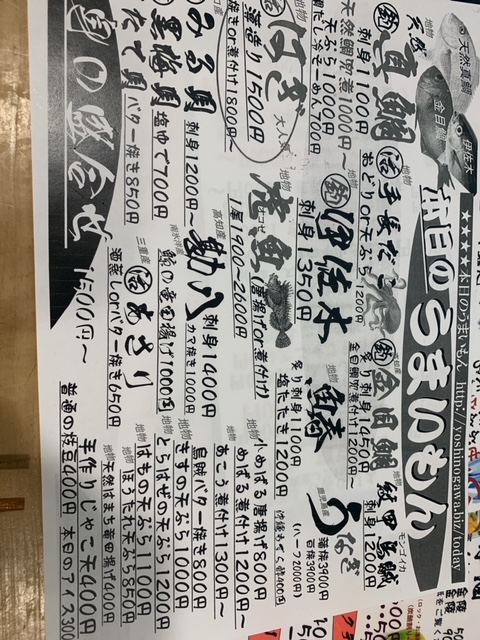 ★★★★本日のうまいもん http://yoshinogawa.biz/today
本日のうまいもん
天然真鯛
金目鯛
伊佐木
地物
天然
釣 真鯛
刺身
天然鯛
煮付け1000円〜
天ぷら1000円
鯛だし冷そーめん700円
地物
活 手長だこ
おどりor天ぷら1200円
高知産
釣 金目鯛
炙り刺身
金目鯛 煮付け
モンゴイカ
紋甲烏賊
刺身1200円
地物
はぎ
大人気
薄造り1500円
唐焼きor煮付け1800円〜
地物
釣 伊佐木
刺身1350円
地物
鰆
炙り刺身1100円
塩たたき1200円
鹿児島産
うなぎ
蒲焼3900円
白焼3900円
(ハーフ2000円)
みる貝
刺身1200円〜
地物
虎魚
オコゼ
唐揚げor煮付け
1尾1900〜2600円
黒梅貝
塩ゆで700円
たて貝 バター焼き850円
高知産
勘八
刺身1400円
カマ焼き1000円
鯨の竜田揚げ1000円
三重産
活あさり
酒蒸しorバター焼き650円
貝の盛合せ 1500円〜
地物
小めばる唐揚げ800円
めばる煮付け1200円〜
あこう煮付け1300円〜
烏賊バター焼き800円
地物
きすの天ぷら1000円
とらはぜの天ぷら1000円
地物
はもの天ぷら1100円
地物
ほうたれ天ぷら850円
地物
天然はまち竜田揚げ
手作りじゃこ天400円
400円 本日のアイス300